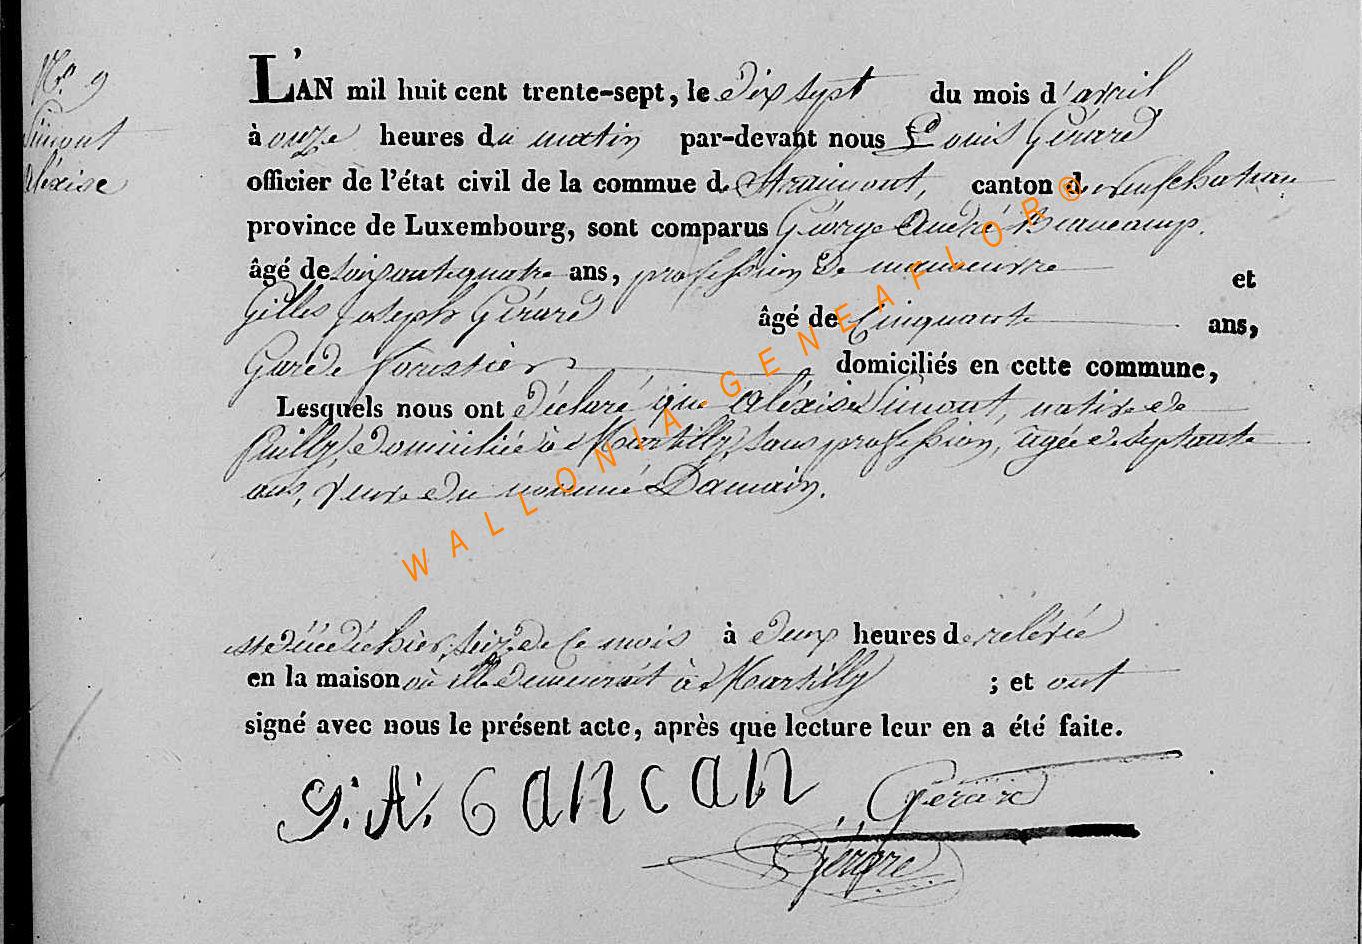 N.° 9
Simont
Aléxise
L'AN mil huit cent trente-sept, le dix sept du mois d'avril
à onze heures du matin par-devant nous Louis Gérard
officier de l'état civil de la commue de Straimont, canton de Neufchateau
province de Luxembourg, sont comparus Géorge André
âgé de soixante quatre ans, profession de manoeuvre et
Gilles Joseph Gérard âgé de Cinquante ans,
Garde forestier domiciliés en cette commune,
Lesquels nous ont déclaré que Aléxise Simont, native de
domiciliée à Martilly, sans profession, agée de septante
ans, veuve du nommé Damain.
est décédée hier, seize de ce mois à deux heures de relévée
en la maison où elle demeurait à Martilly ; et ont
signé avec nous le présent acte, après que lecture leur en a été faite.
WALLONIA-GENEAFLOR®
g. A. cancan Gérard
Gérard